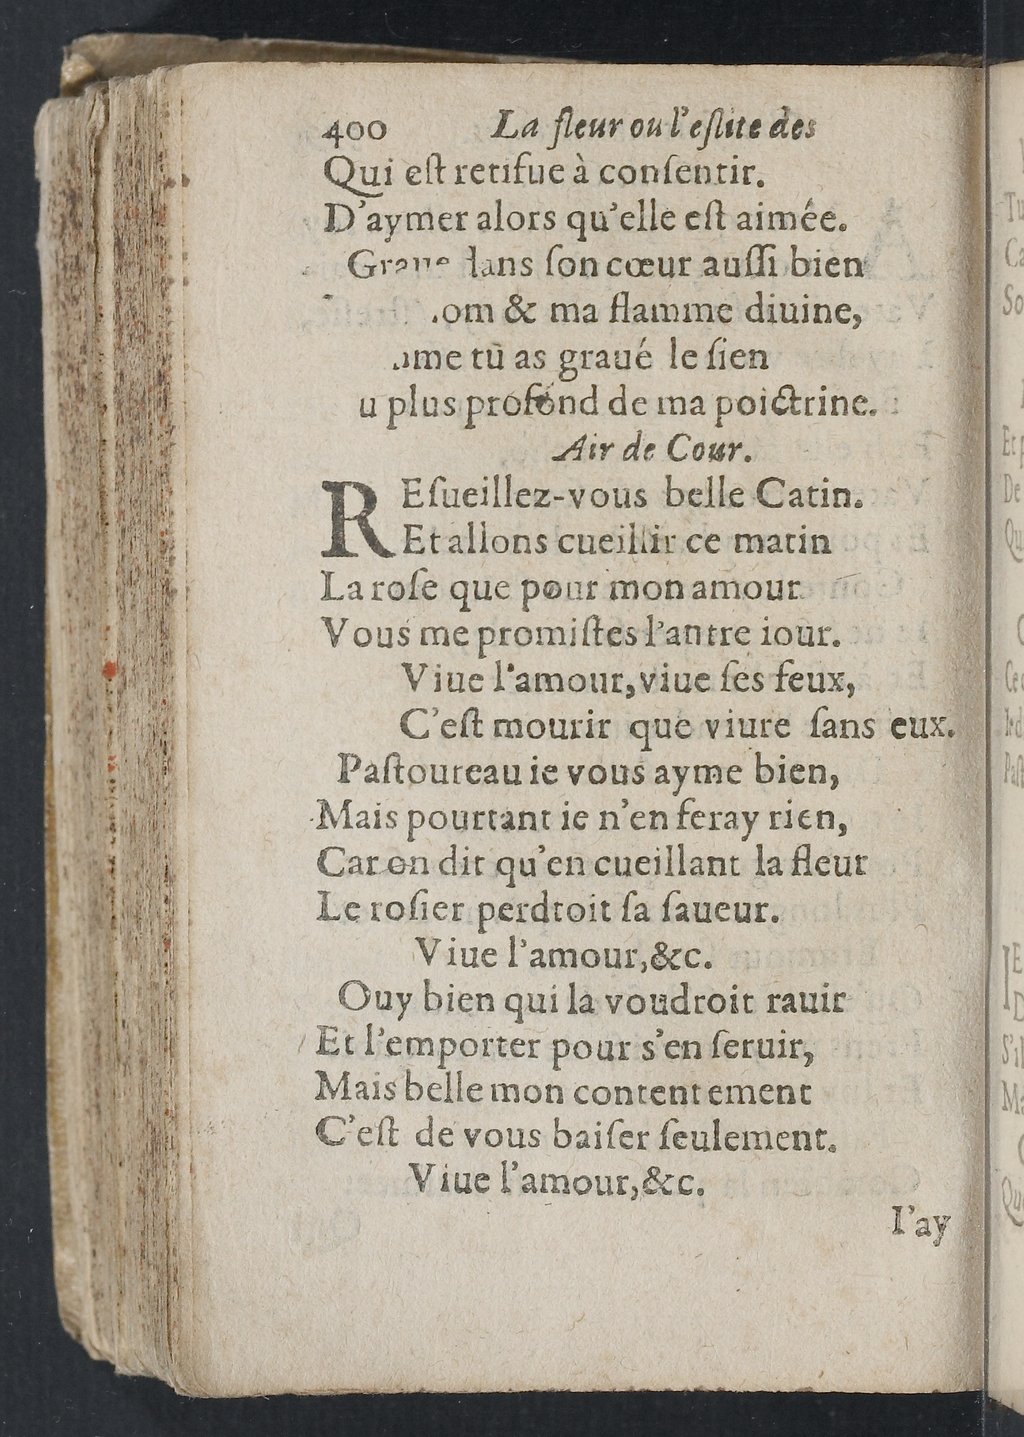 400 La fleur ou l'eſlite des
Qui eſt retifue à conſentir.
D'aymer alors qu'elle eſt aimée.
Graue dans ſon cœur auſſi bien
om & ma flamme diuine,
me tu as graué le ſien
u plus profond de ma poictrine.
Air de Cour.
REſueillez-vous belle Catin.
Et allons cueillir ce matin
La roſe que pour mon amour
Vous me promiſtes l'autre iour.
Viue l'amour, viue ſes feux,
C'eſt mourir que viure ſans eux.
Paſtoureau ie vous ayme bien,
Mais pourtant ie n'en feray rien,
Car on dit qu'en cueillant la fleur
Le roſier perdroit ſa ſaueur.
Viue l'amour, &c.
Ouy bien qui la voudroit rauir
Et l'emporter pour s'en ſeruir,
Mais belle mon contentement
C'eſt de vous baiſer ſeulement.
Viue l'amour, &c.
I'ay